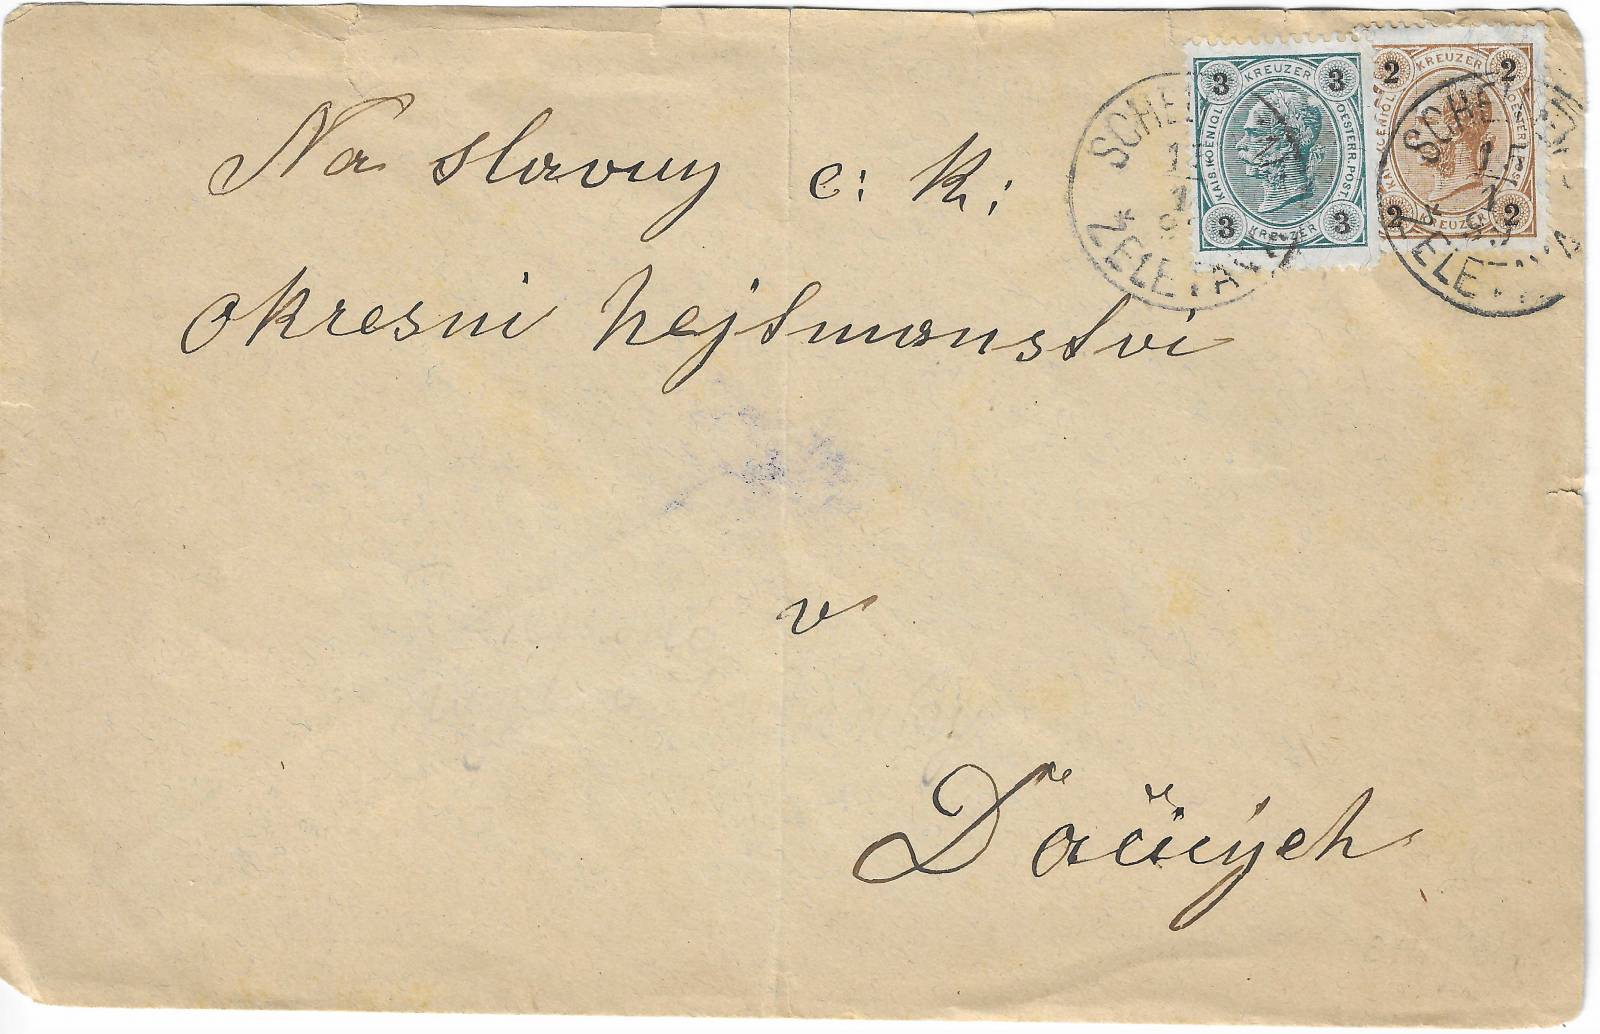 3 KREUZER 3
KAIS. KOENIGL. OESTERR. POST
3 KREUZER 3
2 KREUZER 2
OESTERR. POST
2 KREUZER 2
ZELETAVA
Na slavny c: k:
okresni hejtmanstvi
v
Dačicých